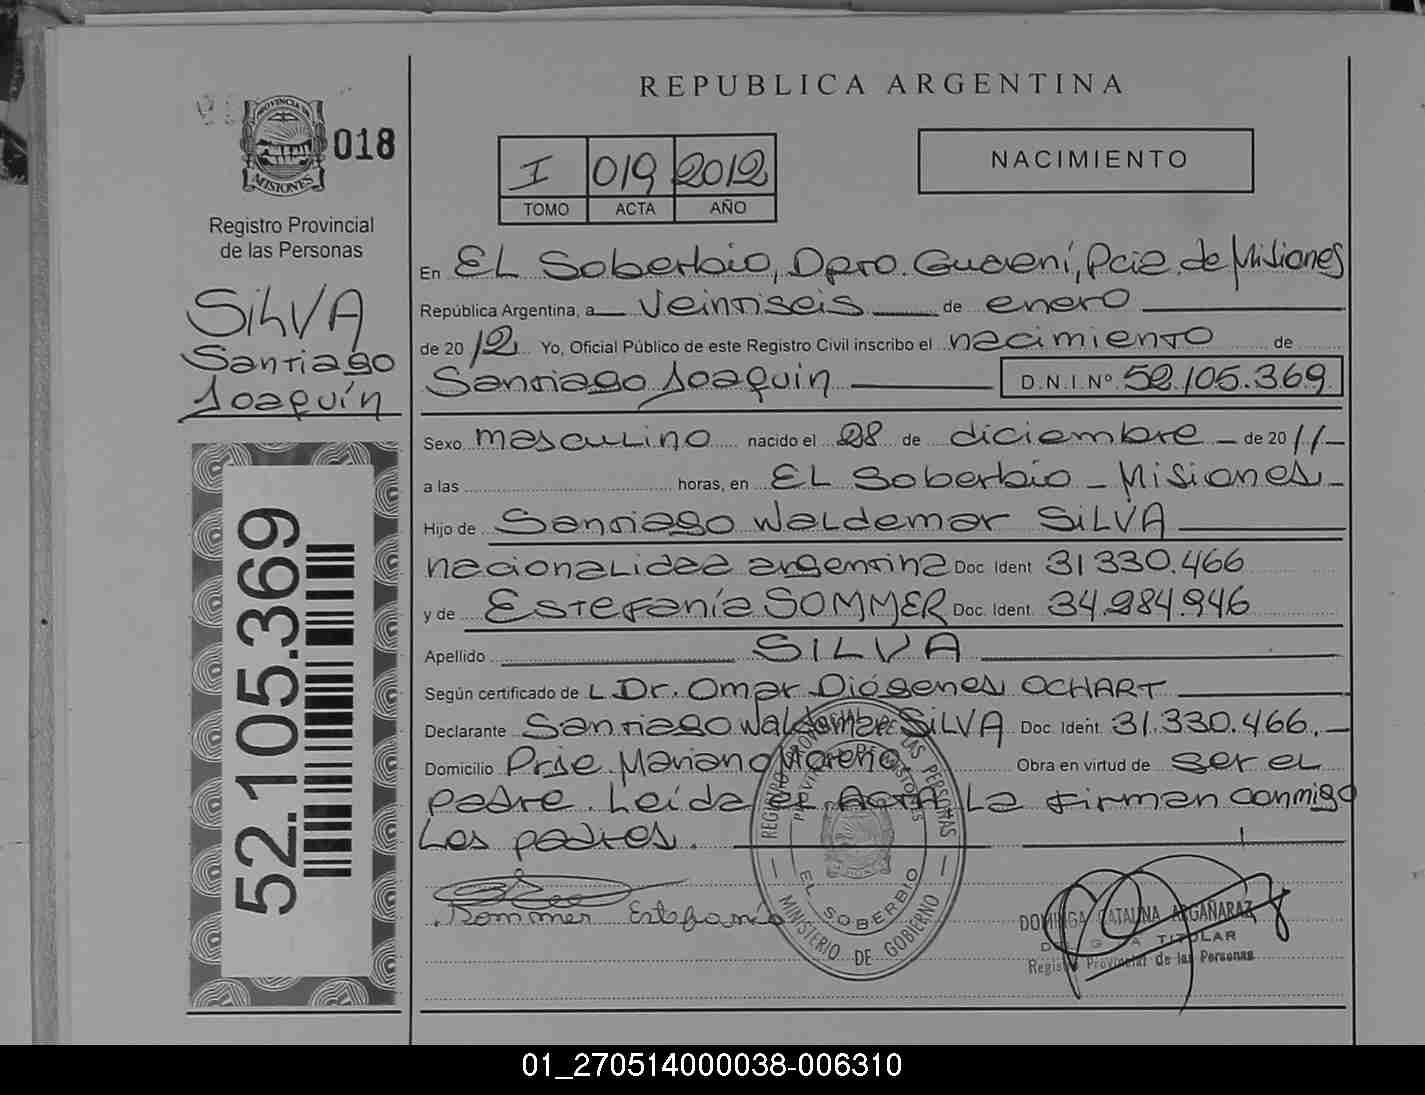 REPUBLICA ARGENTINA
PROVINCIA DE
MISIONES
018
I 019 2012
TOMO ACTA AÑO
NACIMIENTO
Registro Provincial
de las Personas
SILVA
Santiago
Joaquín
52.105.369
En El Soberbio, Dpto. Guaraní, Pcia de Misiones
República Argentina, a veintiseis de enero
de 2012 Yo, Oficial Público de este Registro Civil inscribo el nacimiento de
Santiago Joaquin D.N.I.Nº 52.105.369
Sexo masculino nacido el 28 de diciembre de 2011
a las horas, en El Soberbio - Misiones
Hijo de Santiago Waldemar SILVA
nacionalidad argentina Doc Ident 31330.466
y de Estefanía SOMMER Doc. Ident. 34.284.946
Apellido SILVA
Según certificado de L Dr. Omar Diógenes OCHART
Declarante Santiago Waldemar SILVA Doc. Ident. 31.330.466.-
Domicilio Prje. Mariano Moreno Obra en virtud de ser el
padre. Leída el Acta La firman conmigo
los padres.
Sommer Estefania
REGISTRO PROVINCIAL DE LAS PERSONAS
PROVINCIA DE MISIONES
EL SOBERBIO
MINISTERIO DE GOBIERNO
DOMINGA CATALINA ARGAÑARAZ
TITULAR
Registro Provincial de las Personas
01_270514000038-006310